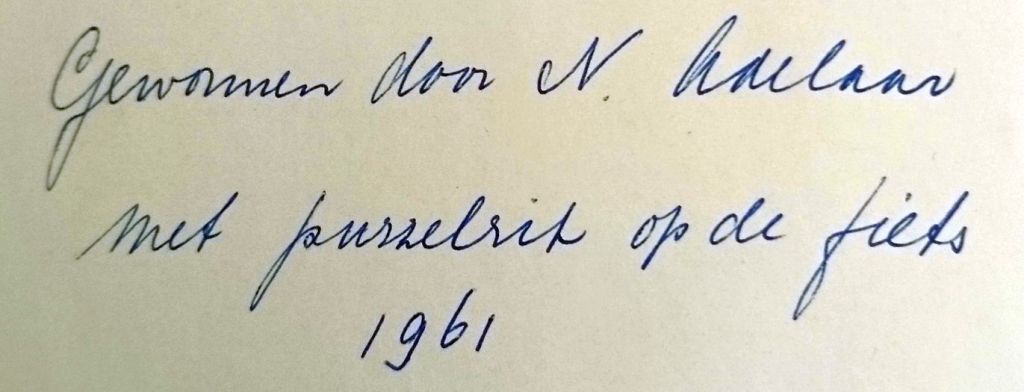 Gewonnen door N. Adelaar
met puzzelrit op de fiets
1961